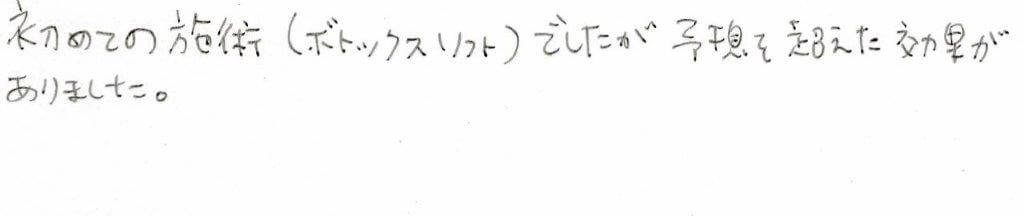 初めての施術（ボトックスリフト）でしたが 予想を超えた効果が
ありました。